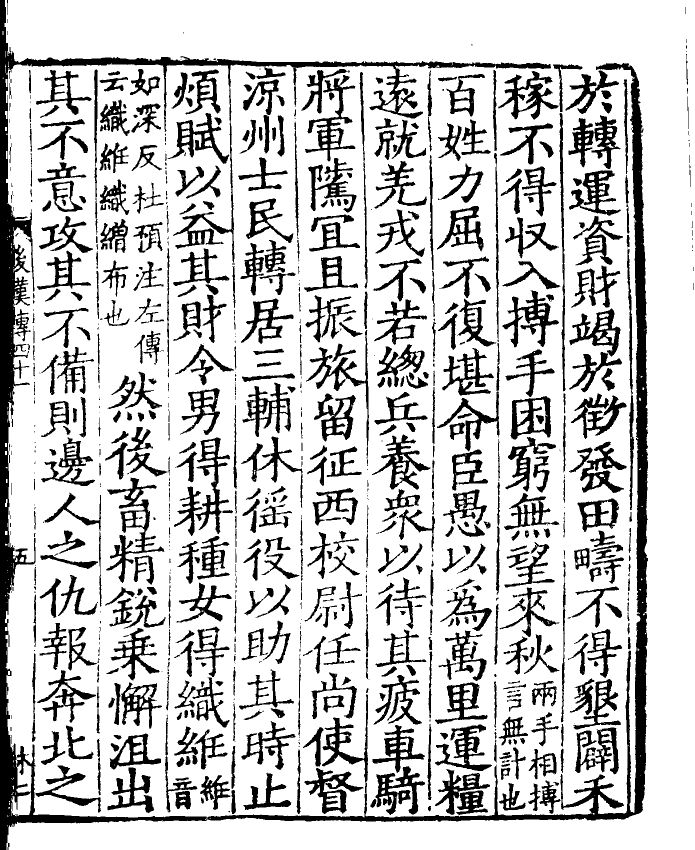 於轉運資財竭於徵發田疇不得墾闢禾
稼不得収入搏手困窮無望來秋兩手相搏言無計也
百姓力屈不復堪命臣愚以爲萬里運糧
遠就羌戎不若緫兵養衆以待其疲車騎
將軍隲冝且振旅留征西校尉任尚使督
涼州士民轉居三輔休徭役以助其時止
煩賦以益其財令男得耕種女得織絍絍音
如深反杜預注左傳云織絍織繒布也然後畜精銳乗懈沮出
其不意攻其不備則邊人之仇報奔北之
後漢傳四十一
五